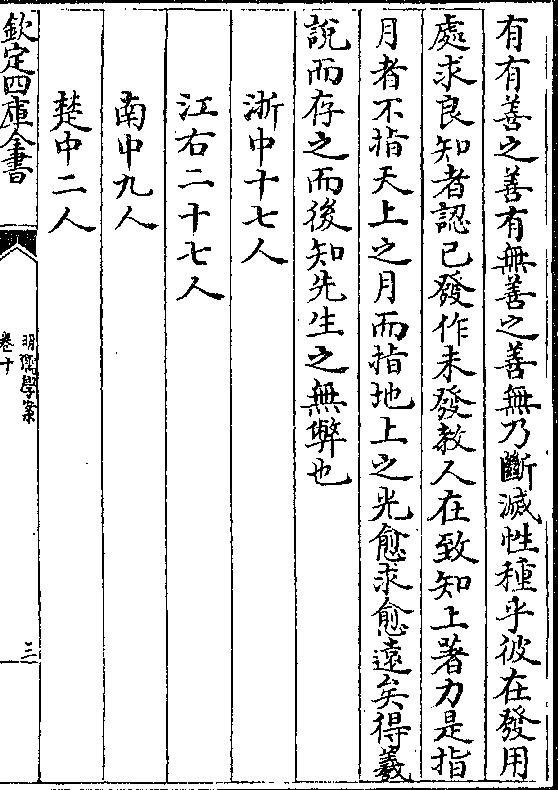 有有善之善有無善之善無乃斷滅性種乎彼在發用
處求良知者認已發作未發教人在致知上著力是指
月者不指天上之月而指地上之光愈求愈遠矣得羲
說而存之而後知先生之無弊也
浙中十七人
江右二十七人
南中九人
楚中二人
欽定四庫全書
明儒學案
卷十
三